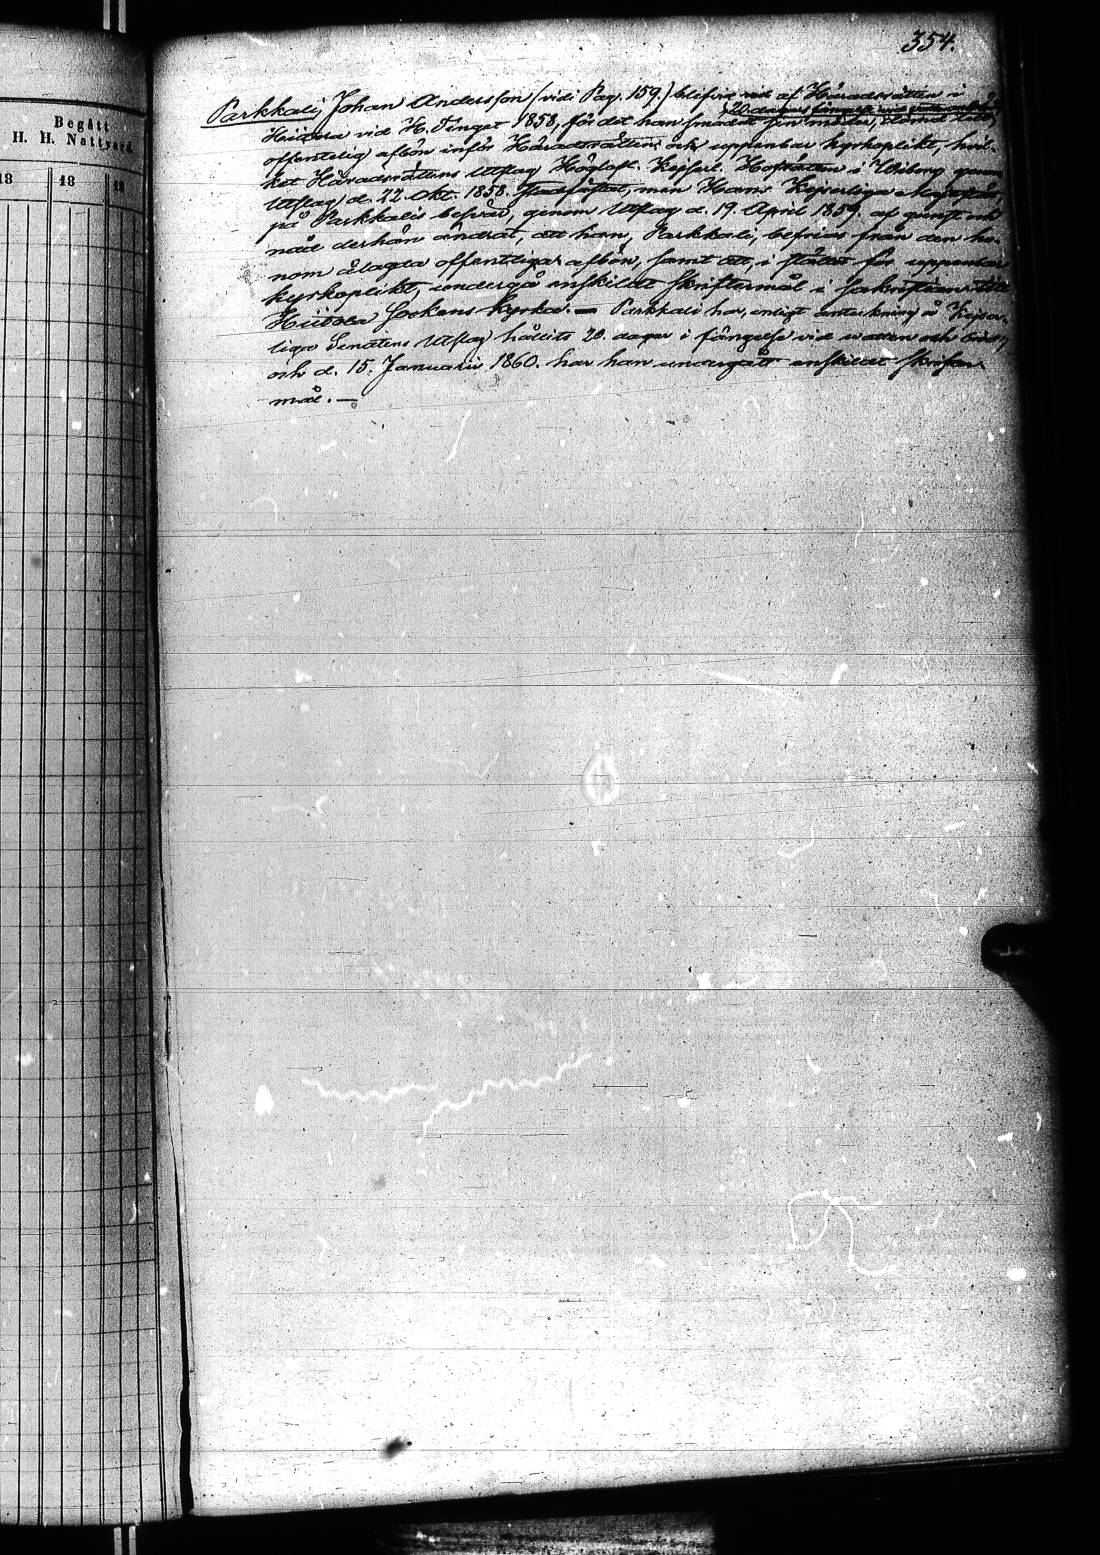 354.
Begått
H. H. Nattvard.
18 18 18
Parkkali, Johan Andersson (vide Pag. 159.) blifvit af Häradsrätten i
20 dagars fängelse vid vatten och bröd
Hiitola vid H. Tinget 1858, för det han smädat sin moder, dömd till
offentelig afbön inför Häradsrätten och uppenbar kyrkoplikt, hvil-
ket Häradsrättens Utslag Höglofl. Kejserl. Hofrätten i Wiborg genom
Utslag d. 22 Okt. 1858 fastställt, men Hans Kejserliga
på Parkkalis besvär, genom Utslag d. 19. April 1859. af gunst och
nåd derhän ändrat, att han, Parkkali, befrias från den ho-
nom ålagda offentliga afbön, samt att, i stället för uppenbar
kyrkoplikt, undergå enskildt skriftermål i sakristian till
Hiitola Sockens Kyrka. — Parkkali har, enligt anteckning å Kejser-
liga Senatens Utslag hållits 20. dagar i fängelse vid vatten och bröd,
och d. 15. Januarii 1860. har han undergått enskildt skrifter-
mål. —